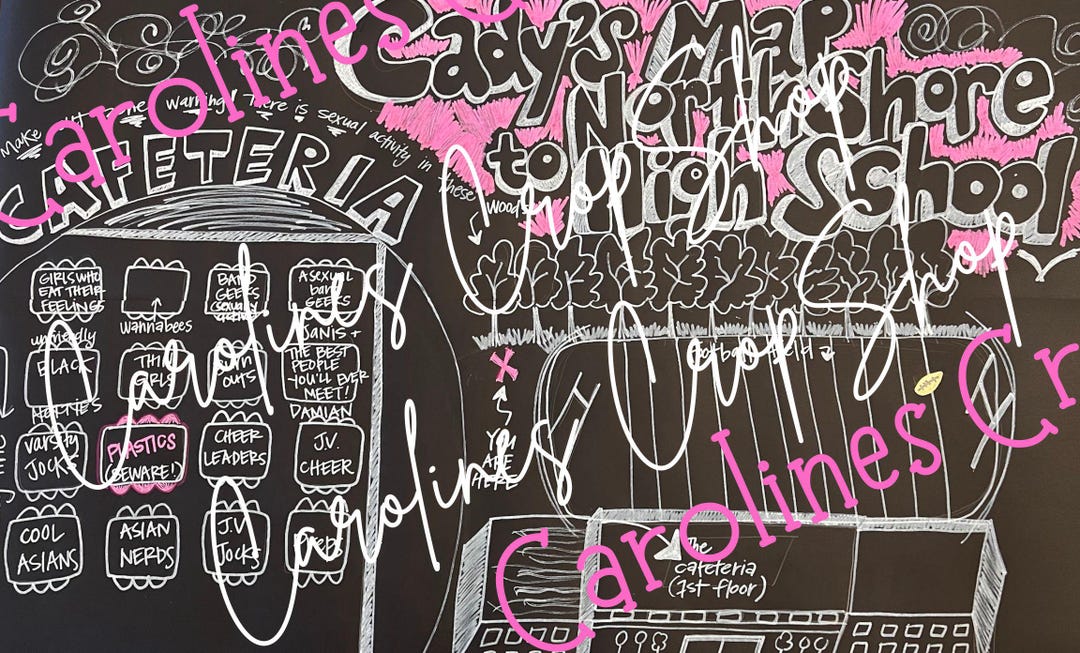 Cady's Map
to North Shore
High School
Make out some warning! There is sexual activity in these woods
CAFETERIA
GIRLS WHO
EAT THEIR
FEELINGS
wannabees
BAND
GEEKS
SEXUALLY
ASEXUAL
band
GEEKS
unfriendly
BLACK
HOTTIE'S
THIN
GIRLS
BURN
OUTS
JANIS +
THE BEST
PEOPLE
YOU'LL EVER
MEET!
DAMIAN
varsity
JOCKS
PLASTICS
(BEWARE!)
CHEER
LEADERS
J.V.
CHEER
COOL
ASIANS
ASIAN
NERDS
J.V.
Jocks
football field
YOU
ARE
HERE
The
cafeteria
(1st floor)
Carolines C
Carolines Cr
Carolines Crop Shop
Carolines Crop Shop